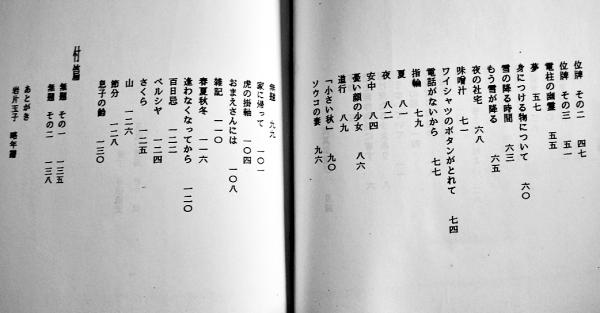 位牌 その二 四七
位牌 その三 五一
電柱の幽霊 五五
夢 五七
身につける物について 六〇
雪の降る時間 六三
もう雪が降る 六五
夜の社宅 六八
味噌汁 七一
ワイシャツのボタンがとれて 七四
電話がないから 七七
指輪 七九
夏 八一
夜 八二
安中 八四
憂い顔の少女 八六
道行 八九
「小さい秋」 九〇
ソウコの妻 九六
無題 九九
家に帰って 一〇一
虎の掛軸 一〇四
おまえさんには 一〇八
雑記 一一〇
春夏秋冬 一一六
逢わなくなってから 一二〇
百日忌 一二二
ペルシヤ 一二四
さくら 一二五
山 一二六
節分 一二八
息子の齢 一三〇
無題 その一 一三五
無題 その二 一三八
あとがき
岩片玉子 略年譜